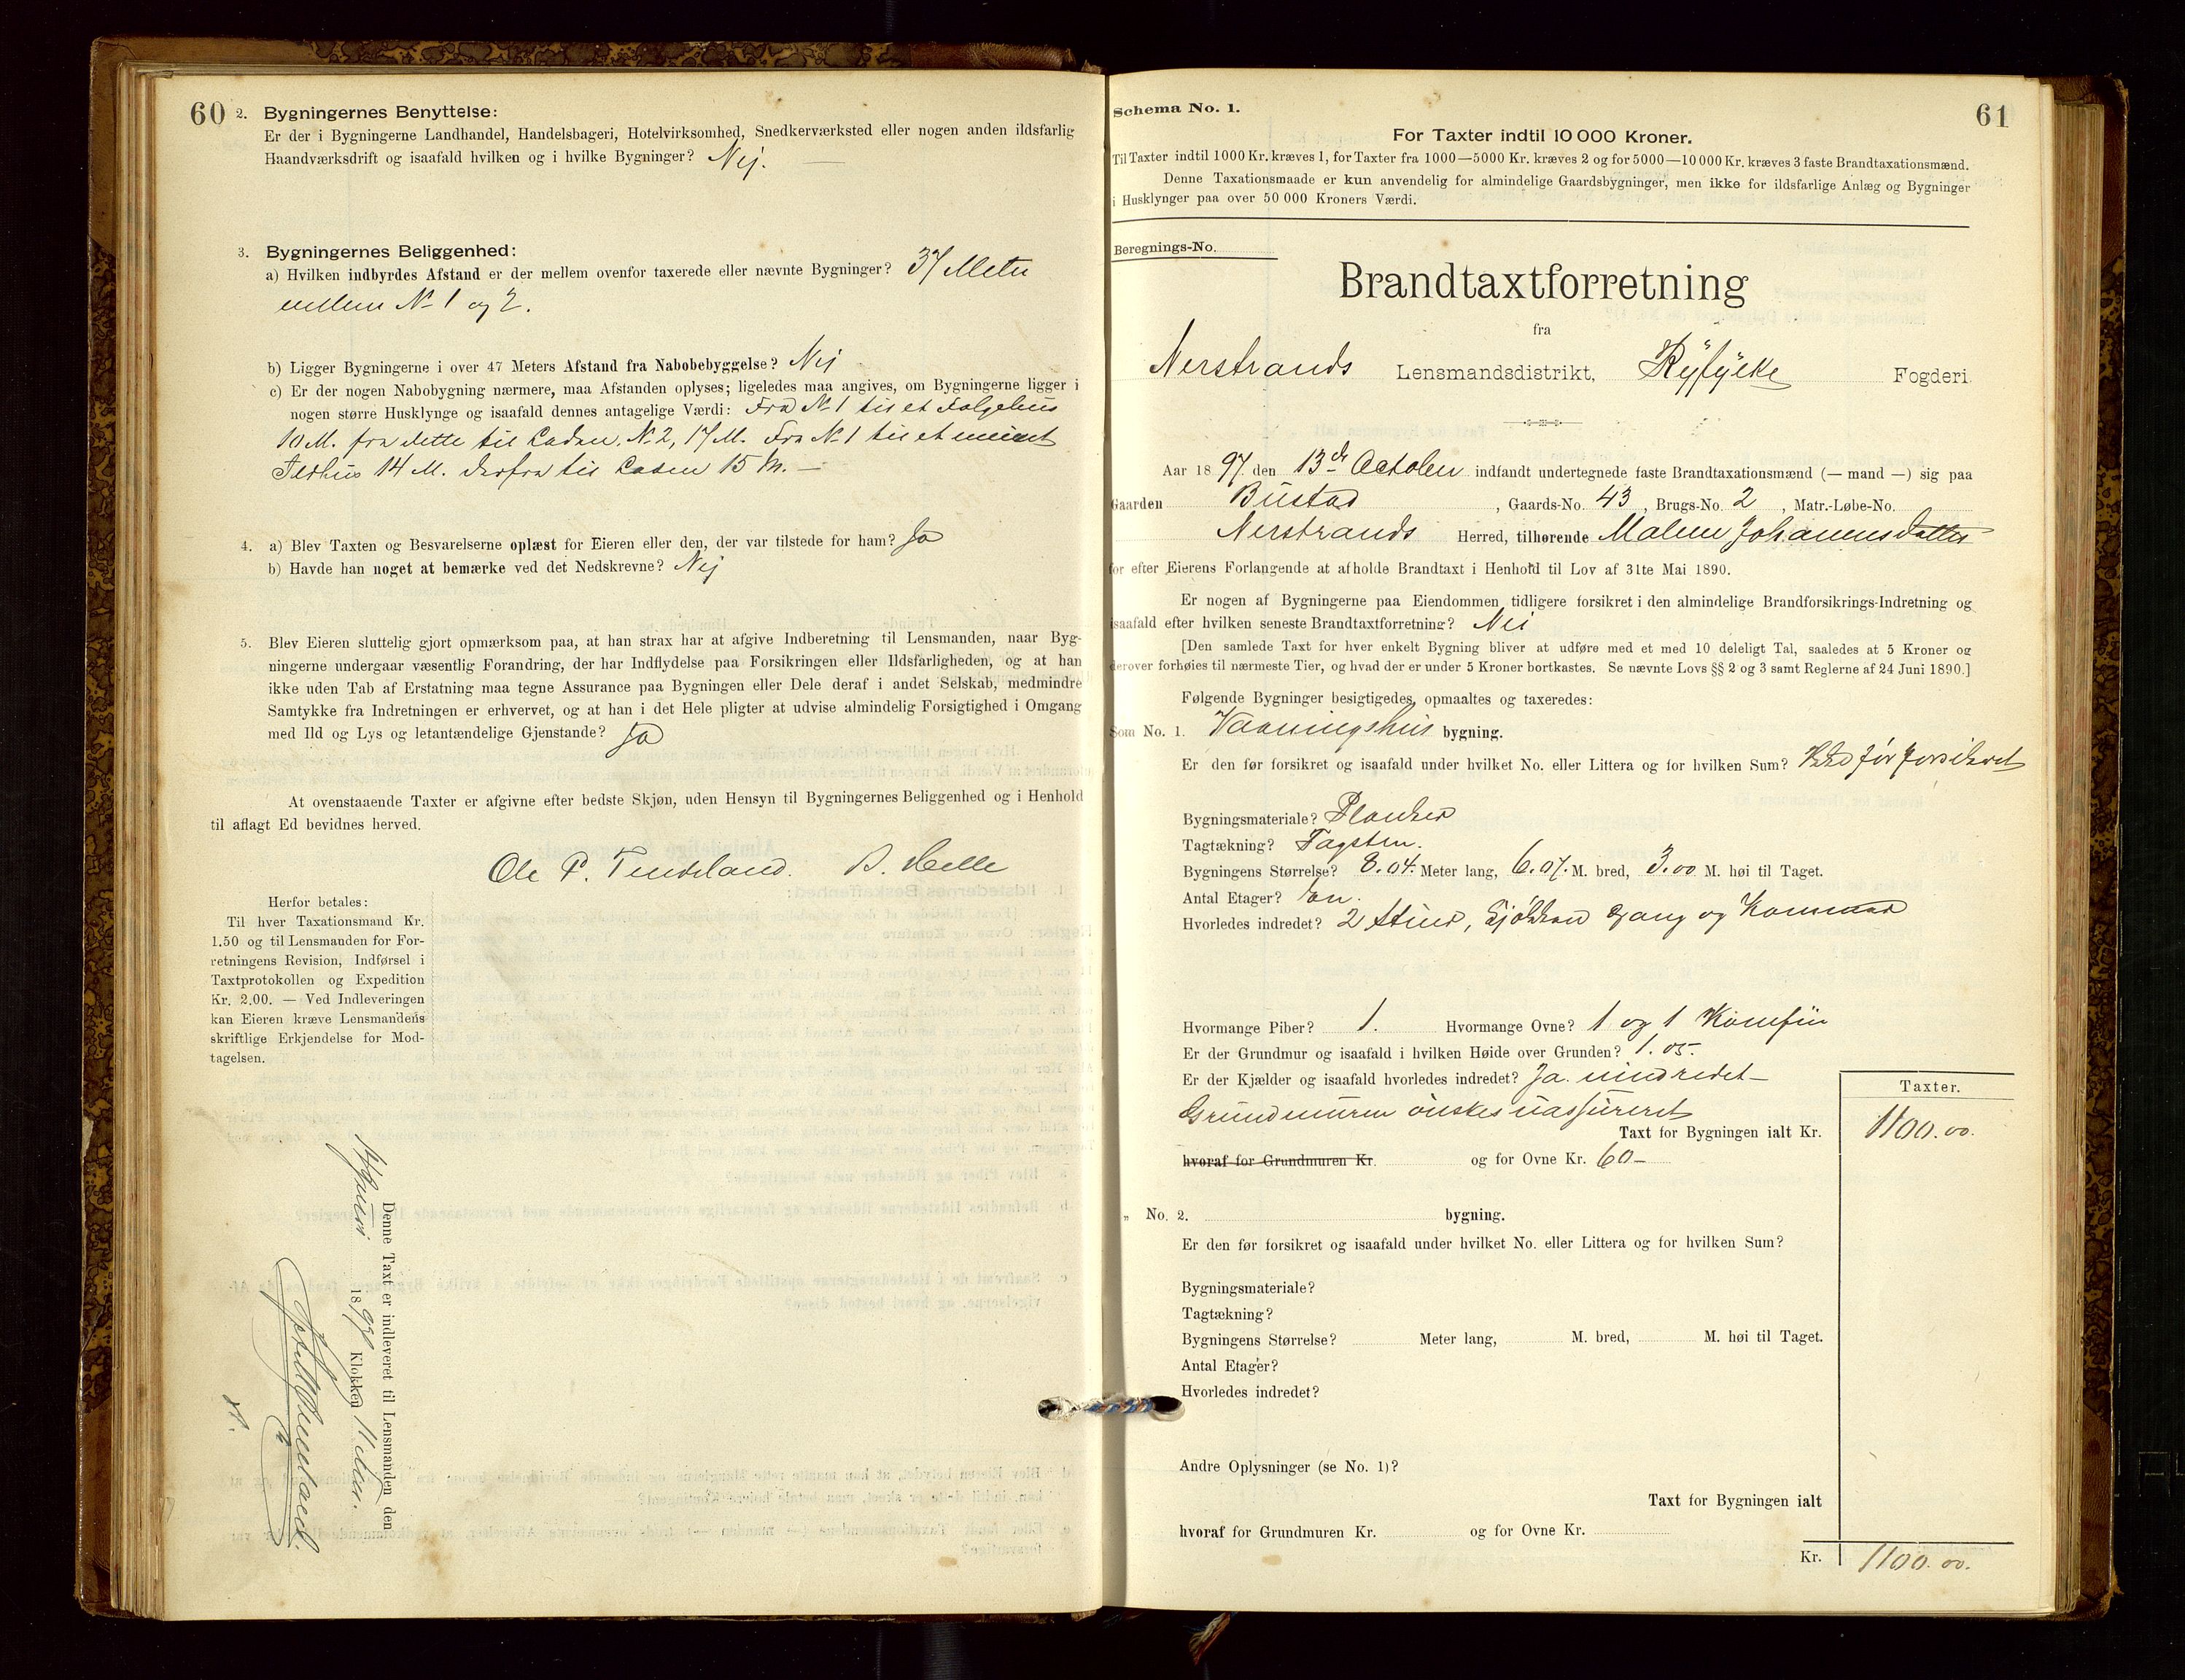 60
2. Bygningernes Benyttelse:
Er der i Bygningerne Landhandel, Handelsbageri, Hotelvirksomhed, Snedkerværksted eller nogen anden ildsfarlig
Haandværksdrift og isaafald hvilken og i hvilke Bygninger? Nej. —
3. Bygningernes Beliggenhed:
a) Hvilken indbyrdes Afstand er der mellem ovenfor taxerede eller nævnte Bygninger? 37 Meter
mellem No 1 og 2.
b) Ligger Bygningerne i over 47 Meters Afstand fra Nabobebyggelse? Nei
c) Er der nogen Nabobygning nærmere, maa Afstanden oplyses; ligeledes maa angives, om Bygningerne ligger i
nogen større Husklynge og isaafald dennes antagelige Værdi: Fra No 1 til et Følgehus
10 M. fra dette til Laden. No 2, 17 M. Fra No 1 til et mindet
Ildhus 14 M. derfra til Laden 15 M. —
4. a) Blev Taxten og Besvarelserne oplæst for Eieren eller den, der var tilstede for ham? Ja
b) Havde han noget at bemærke ved det Nedskrevne? Nej
5. Blev Eieren sluttelig gjort opmærksom paa, at han strax har at afgive Indberetning til Lensmanden, naar Byg-
ningerne undergaar væsentlig Forandring, der har Indflydelse paa Forsikringen eller Ildsfarligheden, og at han
ikke uden Tab af Erstatning maa tegne Assurance paa Bygningen eller Dele deraf i andet Selskab, medmindre
Samtykke fra Indretningen er erhvervet, og at han i det Hele pligter at udvise almindelig Forsigtighed i Omgang
med Ild og Lys og letantændelige Gjenstande? Ja
At ovenstaaende Taxter er afgivne efter bedste Skjøn, uden Hensyn til Bygningernes Beliggenhed og i Henhold
til aflagt Ed bevidnes herved.
Ole P. Tendeland. B. Helle
Herfor betales:
Til hver Taxationsmand Kr.
1.50 og til Lensmanden for For-
retningens Revision, Indførsel i
Taxtprotokollen og Expedition
Kr. 2.00. — Ved Indleveringen
kan Eieren kræve Lensmandens
skriftlige Erkjendelse for Mod-
tagelsen.
Denne Taxt er indleveret til Lensmanden den
1897 Klokken 11
61
Schema No. 1.
For Taxter indtil 10 000 Kroner.
Til Taxter indtil 1000 Kr. kræves 1, for Taxter fra 1000—5000 Kr. kræves 2 og for 5000—10 000 Kr. kræves 3 faste Brandtaxationsmænd.
Denne Taxationsmaade er kun anvendelig for almindelige Gaardsbygninger, men ikke for ildsfarlige Anlæg og Bygninger
i Husklynger paa over 50 000 Kroners Værdi.
Beregnings-No.
Brandtaxtforretning
fra
Nerstrands Lensmandsdistrikt, Ryfylke Fogderi
Aar 1897 den 13de October indfandt undertegnede faste Brandtaxationsmænd (— mand —) sig paa
Gaarden Bustad, Gaards-No. 43, Brugs-No. 2, Matr.-Løbe-No.
Nerstrands Herred, tilhørende Malene Johannesdatter
for efter Eierens Forlangende at afholde Brandtaxt i Henhold til Lov af 31te Mai 1890.
Er nogen af Bygningerne paa Eiendommen tidligere forsikret i den almindelige Brandforsikrings-Indretning og
isaafald efter hvilken seneste Brandtaxtforretning? Nei
[Den samlede Taxt for hver enkelt Bygning bliver at udføre med et med 10 deleligt Tal, saaledes at 5 Kroner og
derover forhøies til nærmeste Tier, og hvad der er under 5 Kroner bortkastes. Se nævnte Lovs §§ 2 og 3 samt Reglerne af 24 Juni 1890.]
Følgende Bygninger besigtigedes, opmaaltes og taxeredes:
Som No. 1. Vaaningshus bygning.
Er den før forsikret og isaafald under hvilket No. eller Littera og for hvilken Sum? før forsikret
Bygningsmateriale? Planker
Tagtækning? Tagsten.
Bygningens Størrelse? 8.04. Meter lang, 6.07. M. bred, 3.00 M. høi til Taget.
Antal Etager? En.
Hvorledes indredet? 2 Stuer, Kjøkken Gang og Kammer
Hvormange Piber? 1. Hvormange Ovne? 1 og 1 Komfur
Er der Grundmur og isaafald i hvilken Høide over Grunden? 1.05.
Er der Kjælder og isaafald hvorledes indredet? Ja. uindredet —
Grundmuren ønskes uassureret
Taxter.
Taxt for Bygningen ialt Kr. 1100.00.
hvoraf for Grundmuren Kr. og for Ovne Kr. 60 —
„ No. 2. bygning.
Er den før forsikret og isaafald under hvilket No. eller Littera og for hvilken Sum?
Bygningsmateriale?
Tagtækning?
Bygningens Størrelse? Meter lang, M. bred, M. høi til Taget.
Antal Etager?
Hvorledes indredet?
Andre Oplysninger (se No. 1)?
Taxt for Bygningen ialt
hvoraf for Grundmuren Kr. og for Ovne Kr.
Kr. 1100.00.